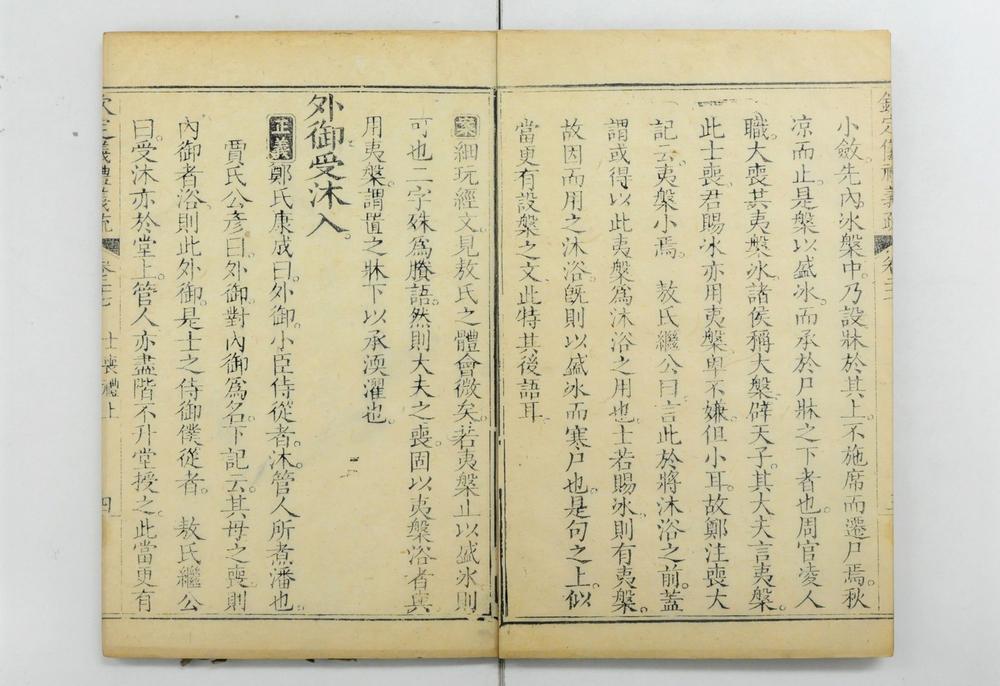 小斂先內冰槃中乃設牀於其上不施席而遷尸焉秋
凉而止是槃以盛冰而承於尸牀之下者也周官凌人
職大喪共夷槃冰諸侯稱大槃辟天子其大夫言夷槃
此士喪君賜冰亦用夷槃卑不嫌但小耳故鄭注喪大
記云夷槃小焉 敖氏繼公曰言此於將沐浴之前蓋
謂或得以此夷槃爲沐浴之用也士若賜冰則有夷槃
故因而用之沐浴旣則以盛冰而寒尸也是句之上似
當更有設槃之文此特其後語耳
案細玩經文見敖氏之體會微矣若夷槃止以盛冰則
可也二字殊爲賸語然則大夫之喪固以夷槃浴者寘
用夷槃謂置之牀下以承渜濯也
外御受沐入
正義鄭氏康成曰外御小臣侍從者沐管人所煮潘也
賈氏公彥曰外御對內御爲名下記云其母之喪則
內御者浴則此外御是士之侍御僕從者 敖氏繼公
曰受沐亦於堂上管人亦盡階不升堂授之此當更有
欽定儀禮義疏 士喪禮上 四